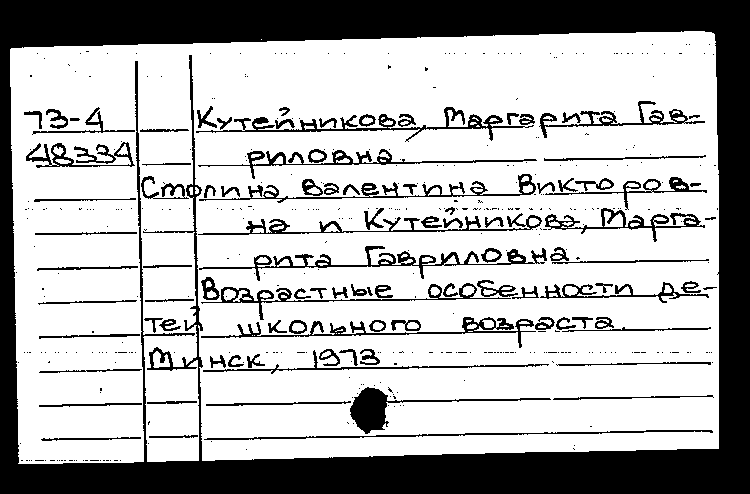 73-4 Кутейникова, Маргарита Гав-
48334 риловна.
Столина, Валентина Викторов-
на и Кутейникова, Марга-
рита Гавриловна.
Возрастные особенности де-
тей школьного возраста.
Минск, 1973.